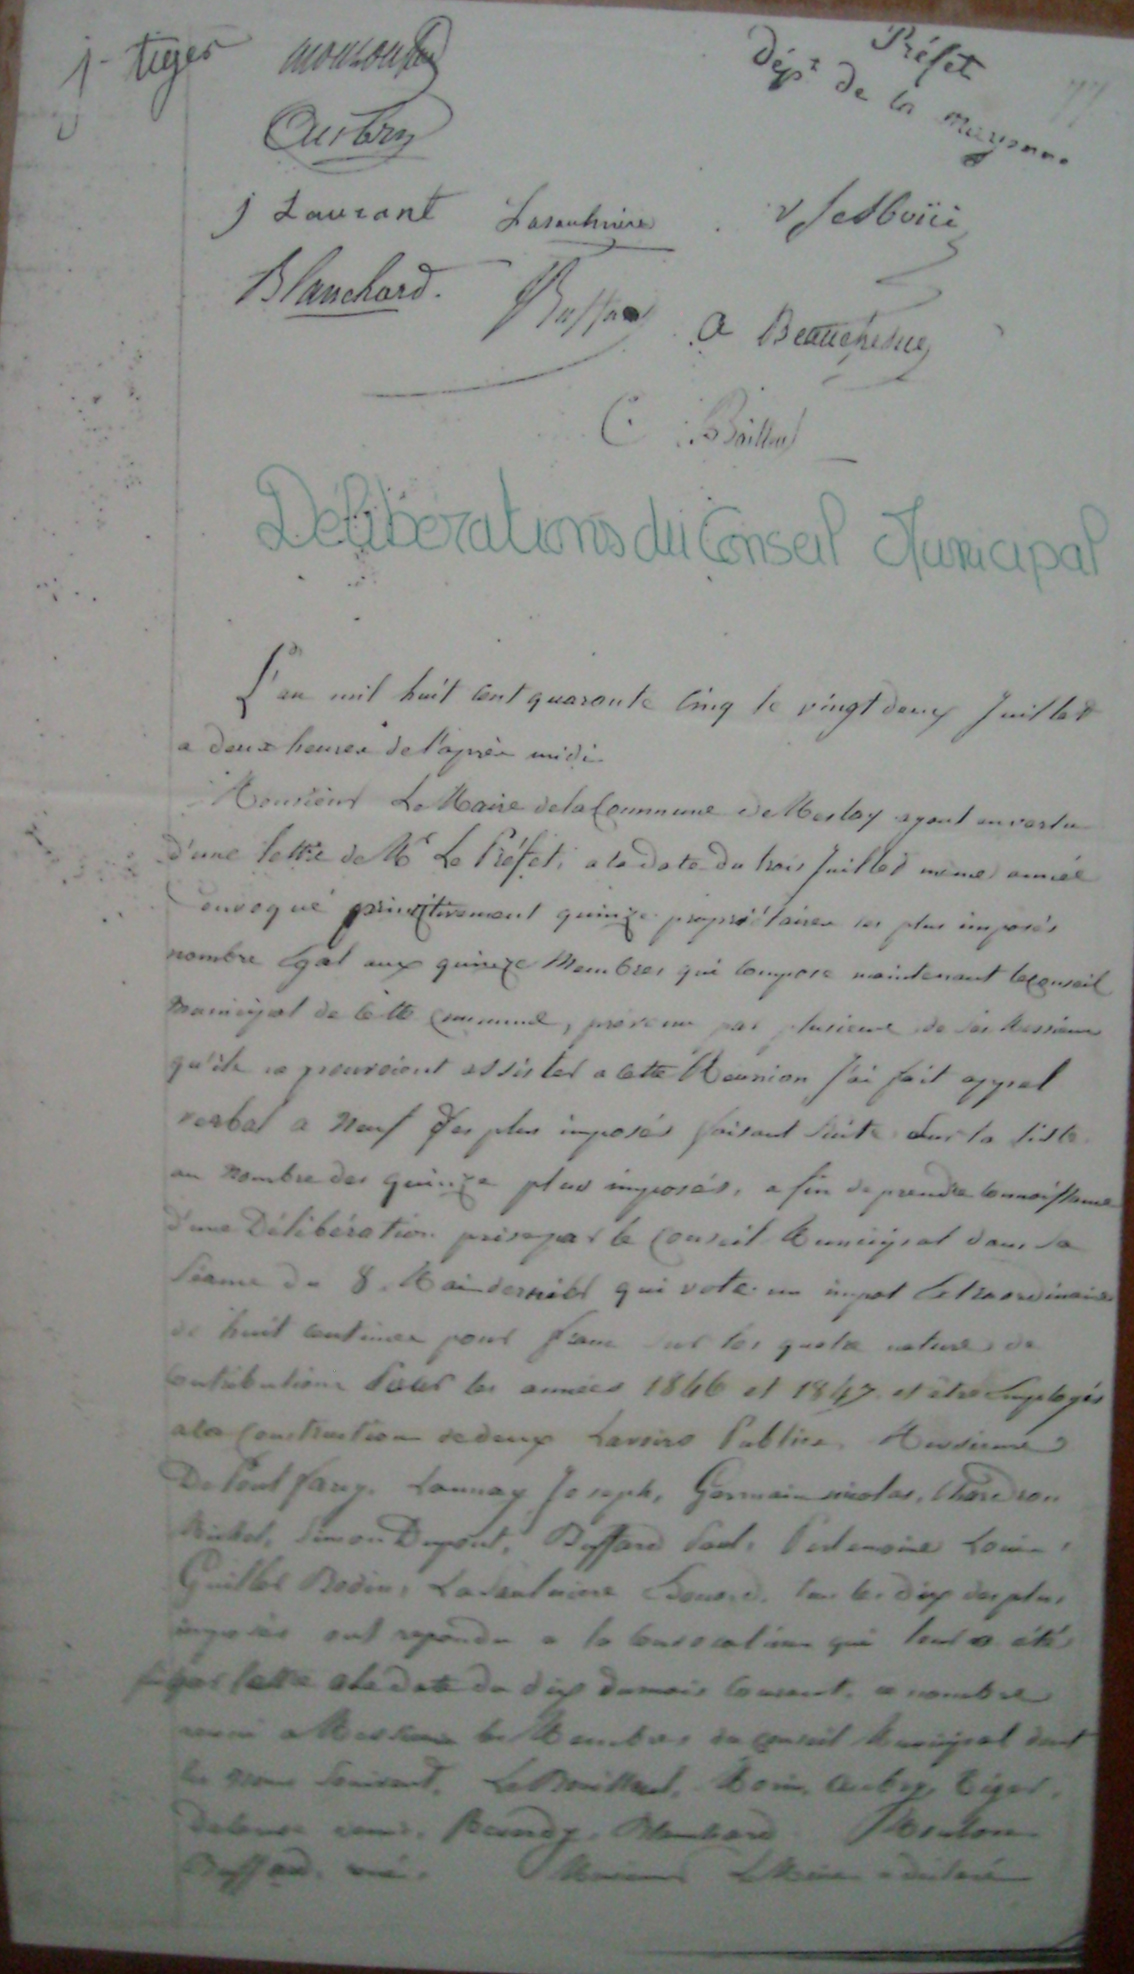 Préfet
j. tiger
Dépt de la mayenne
77
Aubry
j Laurant
Blanchard.
a Beauchesne
C
Délibérations du Conseil Municipal
L'an mil huit cent quaronte Cinq le vingt deux Juillet
a deux heures de l'après midi
Monsieur Le Maire de la Commune de Meslay ayant en vertu
d'une lettre de Mr Le Préfet, a la date du trois Juillet meme année
Convoqué primitivement quinze propriétaires les plus imposés
nombre Egal aux quinze Membres qui compose maintenant le Conseil
Municipal de Cette Commune, prévenu par plusieurs de ses Messieurs
qu'ils ne pouvoient assister a cette Réunion J'ai fait appel
verbal a Neuf des plus imposés faisant Suite Sur la liste
au Nombre des quinze plus imposés, afin de prendre Connoissance
d'une Délibération prise par le Conseil Municipal dans sa
Séance du 8. Mai dernier qui vote un impot Extraordinaire
de huit centimes pour franc sur les quatre natures de
Contributions Pour les années 1846 et 1847 et être Employés
a la Construction de deux Lavoirs Publics. Messieurs
Launay Joseph, Germain nicolas,
Michel, Simon Dupont, Buffard Paul, Louis,
tous les dix des plus
imposés ont repondu a la Convocation qui leur a été
par lettre a la Date du dix du mois Courant. nombre
les Membres du Conseil Municipal dont
les Noms Suivent. Morin, Aubry, Tiger,
Blanchard
Buffard Monsieur Le Maire a déclaré